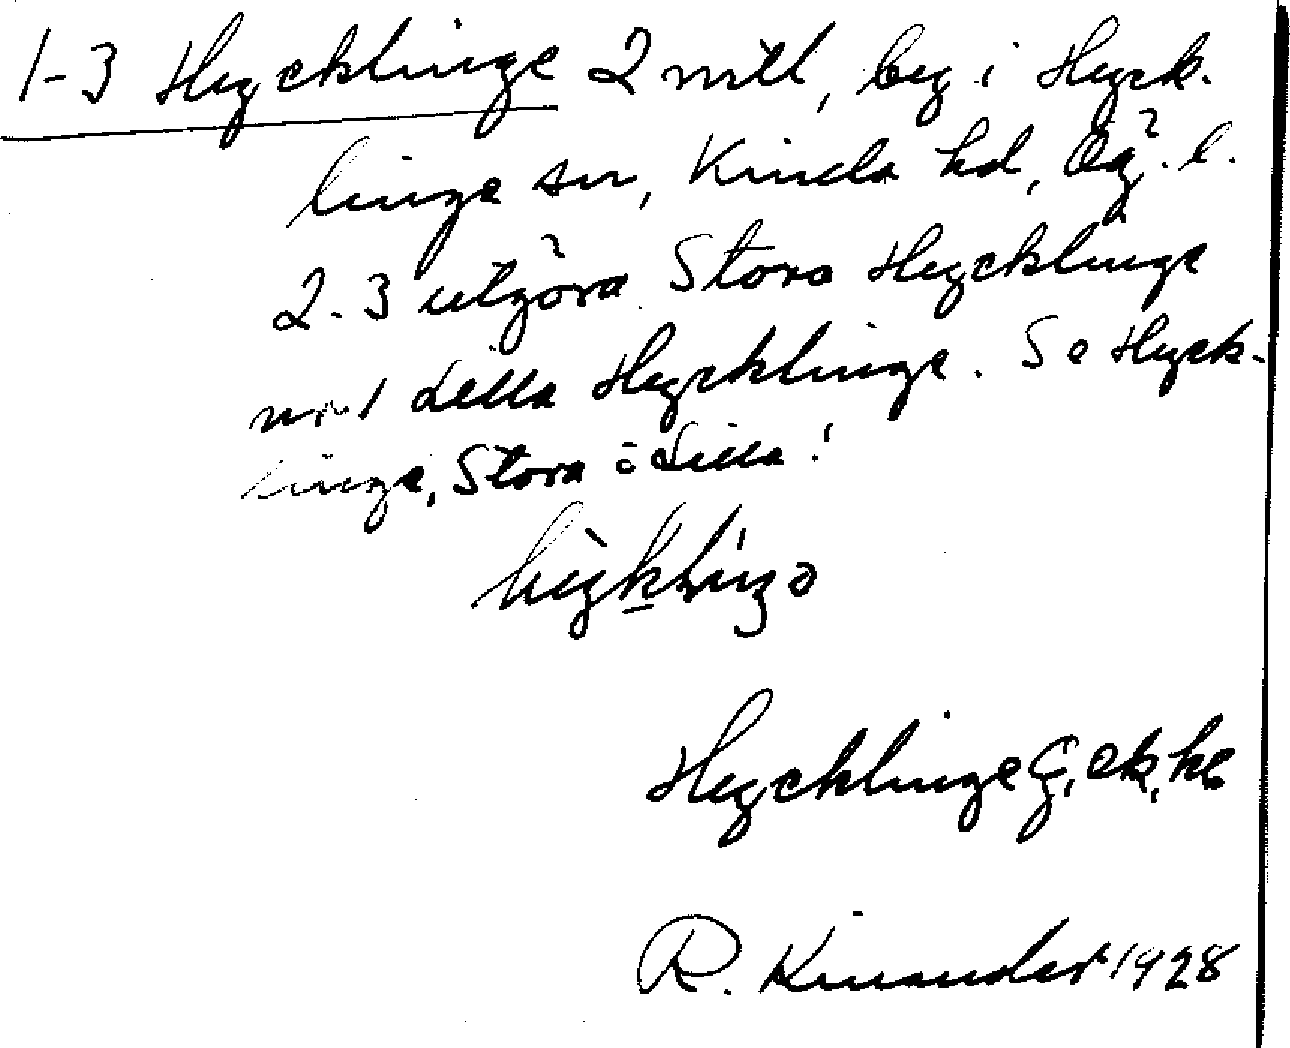 1-3 Hycklinge 2 mtl, beg i Hyck-
linge sn, Kinda hd, Ög. l.
2-3 utgöra Stora Hycklinge
nr 1 Lilla Hycklinge. Se Hyck-
linge, Stora o Lilla!
Hycklinge G, ek, ke
R. Kinander 1928